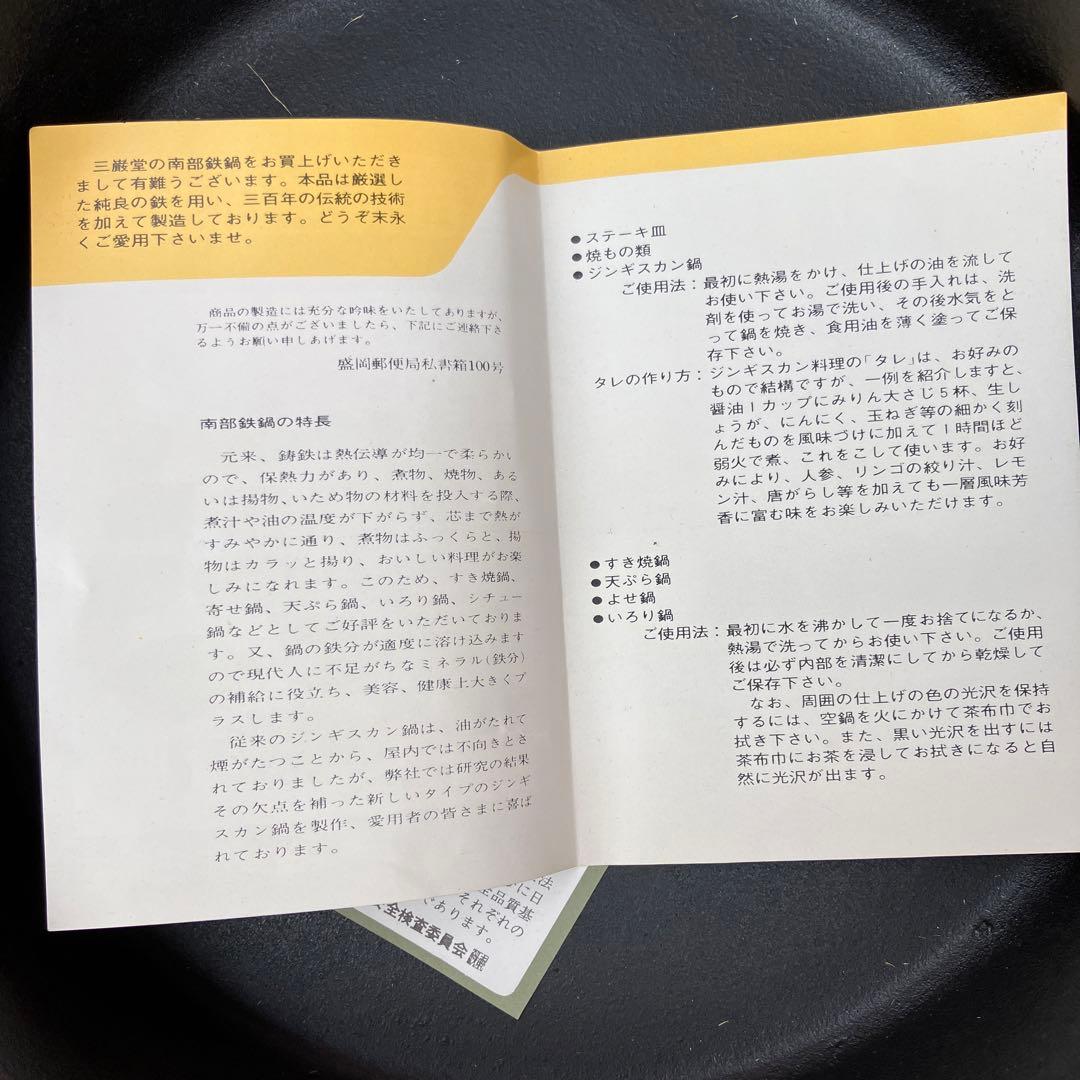 三巌堂の南部鉄鍋をお買上げいただき
まして有難うございます。本品は厳選し
た純良の鉄を用い、三百年の伝統の技術
を加えて製造しております。どうぞ末永
くご愛用下さいませ。
商品の製造には充分な吟味をいたしてありますが、
万一不備の点がございましたら、下記にご連絡下さ
るようお願い申しあげます。
盛岡郵便局私書箱100号
南部鉄鍋の特長
元来、鋳鉄は熱伝導が均一で柔らかい
ので、保熱力があり、煮物、焼物、ある
いは揚物、いため物の材料を投入する際、
煮汁や油の温度が下がらず、芯まで熱が
すみやかに通り、煮物はふっくらと、揚
物はカラッと揚り、おいしい料理がお楽
しみになれます。このため、すき焼鍋、
寄せ鍋、天ぷら鍋、いろり鍋、シチュー
鍋などとしてご好評をいただいておりま
す。又、鍋の鉄分が適度に溶け込みます
ので現代人に不足がちなミネラル(鉄分)
の補給に役立ち、美容、健康上大きくプ
ラスします。
従来のジンギスカン鍋は、油がたれて
煙がたつことから、屋内では不向きとさ
れておりましたが、弊社では研究の結果
その欠点を補った新しいタイプのジンギ
スカン鍋を製作、愛用者の皆さまに喜ば
れております。
●ステーキ皿
●焼もの類
●ジンギスカン鍋
ご使用法：最初に熱湯をかけ、仕上げの油を流して
お使い下さい。ご使用後の手入れは、洗
剤を使ってお湯で洗い、その後水気をと
って鍋を焼き、食用油を薄く塗ってご保
存下さい。
タレの作り方：ジンギスカン料理の「タレ」は、お好みの
もので結構ですが、一例を紹介しますと、
醤油１カップにみりん大さじ５杯、生し
ょうが、にんにく、玉ねぎ等の細かく刻
んだものを風味づけに加えて１時間ほど
弱火で煮、これをこして使います。お好
みにより、人参、リンゴの絞り汁、レモ
ン汁、唐がらし等を加えても一層風味芳
香に富む味をお楽しみいただけます。
●すき焼鍋
●天ぷら鍋
●よせ鍋
●いろり鍋
ご使用法：最初に水を沸かして一度お捨てになるか、
熱湯で洗ってからお使い下さい。ご使用
後は必ず内部を清潔にしてから乾燥して
ご保存下さい。
なお、周囲の仕上げの色の光沢を保持
するには、空鍋を火にかけて茶布巾でお
拭き下さい。また、黒い光沢を出すには
茶布巾にお茶を浸してお拭きになると自
然に光沢が出ます。
法
に日
全品質基
それぞれの
であります。
全検査委員会